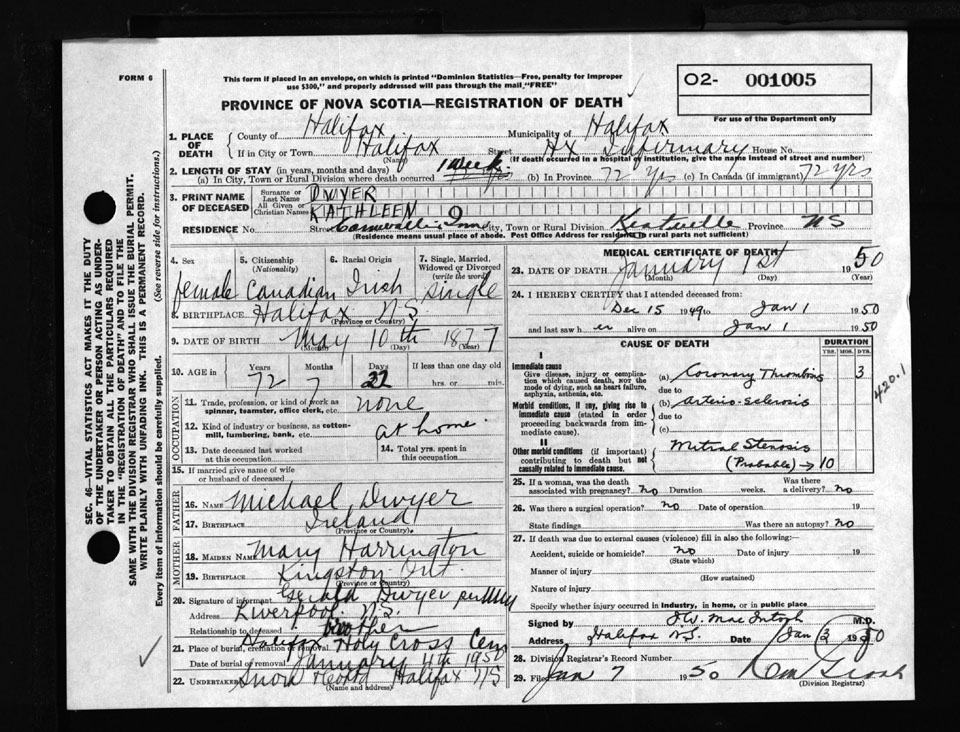 FORM 6
This form if placed in an envelope, on which is printed "Dominion Statistics—Free, penalty for improper
use $300," and properly addressed will pass through the mail "FREE"
PROVINCE OF NOVA SCOTIA—REGISTRATION OF DEATH
O2- 001005
For use of the Department only
1. PLACE OF DEATH
County of Halifax Municipality of Halifax
If in City or Town Halifax Street Hx Infirmary House No.
(Name) (If death occurred in a hospital or institution, give the name instead of street and number)
2. LENGTH OF STAY (in years, months and days)
(a) In City, Town or Rural Division where death occurred 1 Week (b) In Province 72 yrs (c) In Canada (if immigrant) 72 yrs
3. PRINT NAME OF DECEASED
Surname or Last Name DWYER
All Given or Christian Names KATHLEEN
RESIDENCE No. Street Cornwallis Inn City, Town or Rural Division Kentville Province NS
(Residence means usual place of abode. Post Office Address for residents in rural parts not sufficient)
4. Sex female
5. Citizenship (Nationality) Canadian
6. Racial Origin Irish
7. Single, Married, Widowed or Divorced (write the word) Single
8. BIRTHPLACE Halifax N.S.
(Province or Country)
9. DATE OF BIRTH May 10th 1877
(Month) (Day) (Year)
10. AGE in
Years 72 Months 7 Days 22 If less than one day old
hrs. or min.
OCCUPATION
11. Trade, profession, or kind of work as spinner, teamster, office clerk, etc. none
12. Kind of industry or business, as cotton-mill, lumbering, bank, etc. at home
13. Date deceased last worked at this occupation
14. Total yrs. spent in this occupation
15. If married give name of wife or husband of deceased
FATHER
16. NAME Michael Dwyer
17. BIRTHPLACE Ireland
(Province or Country)
MOTHER
18. MAIDEN NAME Mary Harrington
19. BIRTHPLACE Kingston Ont.
(Province or Country)
20. Signature of informant Gerald Dwyer per
Address Liverpool. N.S.
Relationship to deceased brother
21. Place of burial, cremation or removal Halifax Holy Cross Cem
Date of burial or removal January 4th 1950
22. UNDERTAKER Snow Halifax NS
(Name and address)
MEDICAL CERTIFICATE OF DEATH
23. DATE OF DEATH January 1st 1950
(Month) (Day) (Year)
24. I HEREBY CERTIFY that I attended deceased from:
Dec 15 1949 to Jan 1 1950
and last saw her alive on Jan 1 1950
CAUSE OF DEATH
DURATION
YRS. MOS. DYS.
I
Immediate cause
Give disease, injury or complication which caused death, not the mode of dying, such as heart failure, asphyxia, asthenia, etc.
(a) Coronary Thrombosis 3
due to
Morbid conditions, if any, giving rise to immediate cause (stated in order proceeding backwards from immediate cause).
(b) Arterio-sclerosis
due to
(c)
II
Other morbid conditions (if important) contributing to death but not causally related to immediate cause.
Mitral Stenosis
(Probable) → 10
420.1
25. If a woman, was the death associated with pregnancy? no Duration weeks. Was there a delivery? no
26. Was there a surgical operation? no Date of operation 19
State findings Was there an autopsy? no
27. If death was due to external causes (violence) fill in also the following:
Accident, suicide or homicide? no Date of injury 19
(State which)
Manner of injury
(How sustained)
Nature of injury
Specify whether injury occurred in industry, in home, or in public place
Signed by MacIntosh M.D.
Address Halifax N.S. Date Jan 3 1950
28. Division Registrar's Record Number
29. Filed Jan 7 1950
(Division Registrar)
SEC. 46—VITAL STATISTICS ACT MAKES IT THE DUTY
OF THE UNDERTAKER OR PERSON ACTING AS UNDER-
TAKER TO OBTAIN ALL THE PARTICULARS REQUIRED
IN THE "REGISTRATION OF DEATH" AND TO FILE THE
SAME WITH THE DIVISION REGISTRAR WHO SHALL ISSUE THE BURIAL PERMIT.
WRITE PLAINLY WITH UNFADING INK. THIS IS A PERMANENT RECORD.
Every item of information should be carefully supplied. (See reverse side for instructions.)